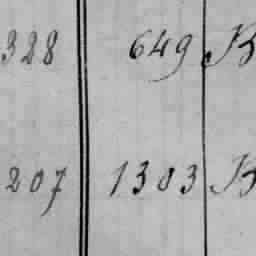 328 649 B
207 1303 B